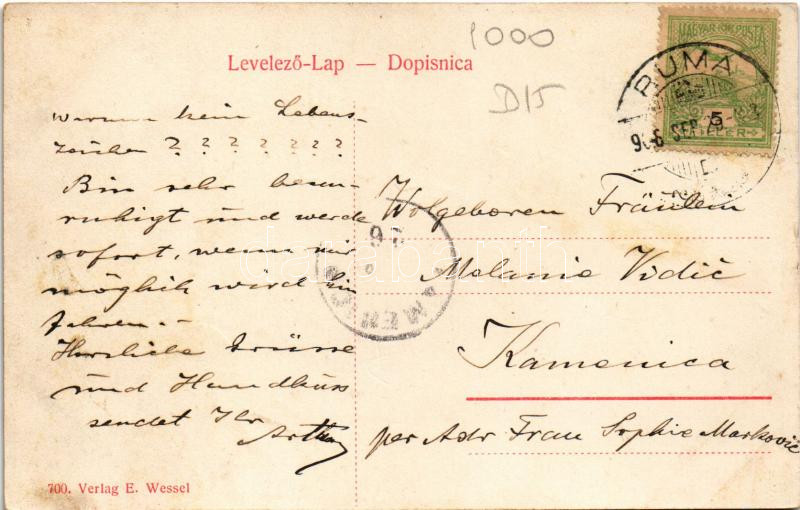 1000
D15
Levelező-Lap — Dopisnica
MAGYAR KIR. POSTA
RUMA
906 SEP
5
FILLÉR
warum kein Lebens-
zeichen ? ? ? ? ? ? ? ?
Bin sehr beun-
ruhigt und werde
sofort, wenn mir
möglich wird hin
fahren.-
Herzliche Grüsse
und Handkuss
sendet Ihr
Arthur
Wolgeboren Fräulein
Melanie Vidić
Kamenica
per Adr Frau Sophie Marković
700. Verlag E. Wessel